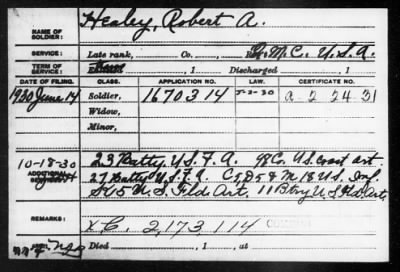 Healey, Robert A.
NAME OF SOLDIER:
SERVICE: Late rank, Co., Q.M.C. U.S.A.
TERM OF SERVICE: Enlisted , 1 Discharged , 1
DATE OF FILING. CLASS. APPLICATION NO. LAW. CERTIFICATE NO.
1930 June 14 Soldier, 1670314 7-2-30 A 2 24 31
Widow,
Minor,
10-18-30 23 Batty U.S.F.A. 48 Co. U.S. Coast art.
ADDITIONAL SERVICES: 27 Batty U.S.F.A. C, D & M 18 U.S. Inf.
5 U.S. Fld Art. 11 Btry U.S. Fld. Art.
REMARKS: XC. 2,173,114
Died , 1 , at